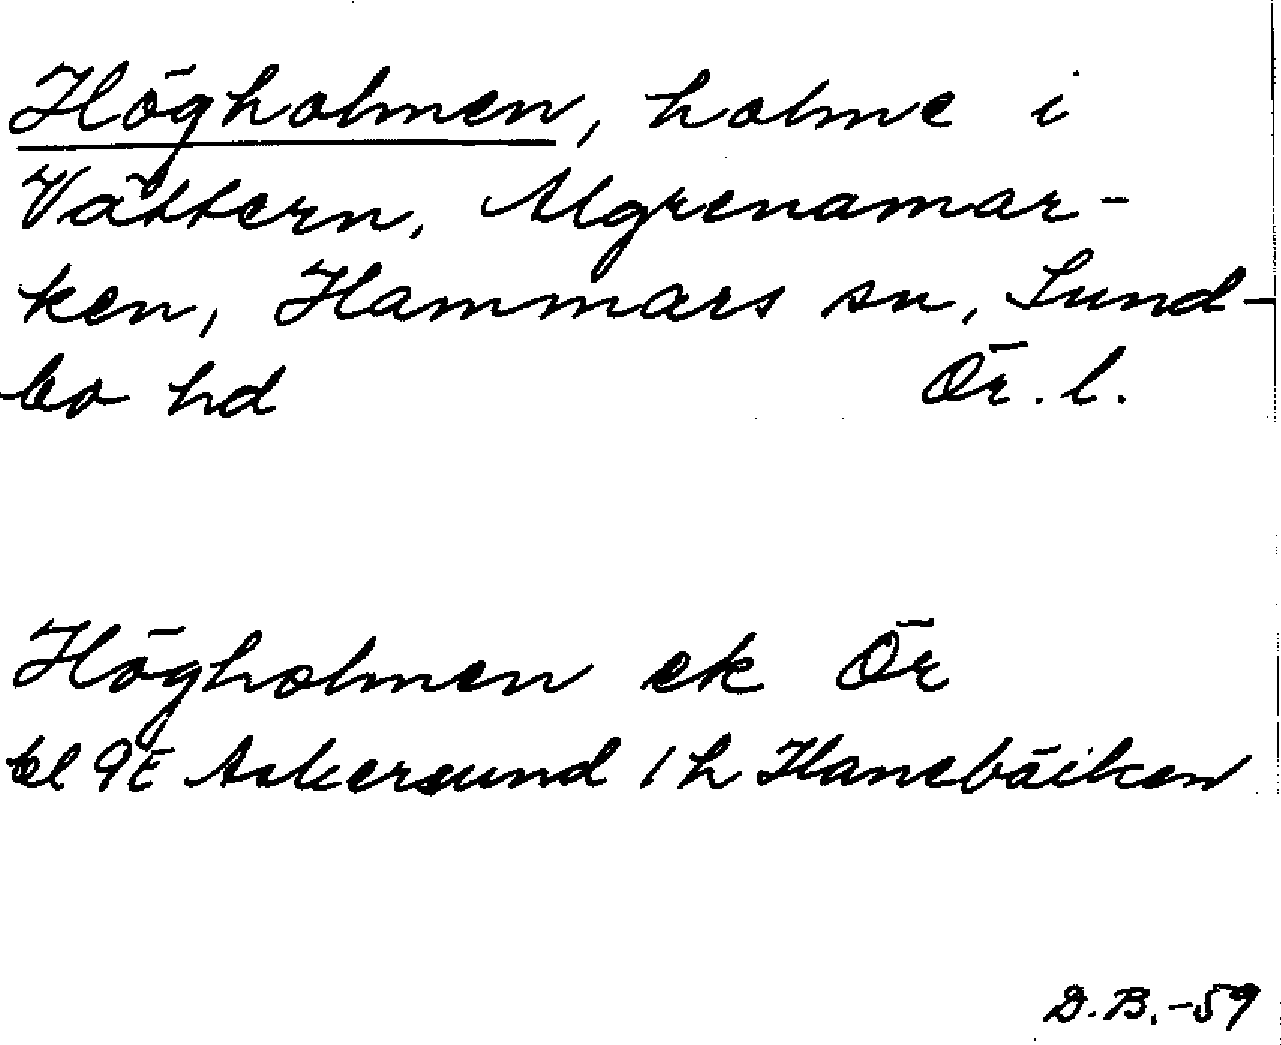 Högholmen, holme i
Vättern, Algrenamar-
ken, Hammars sn, Sund-
bo hd Ör. l.
Högholmen ek Ör
bl 9E Askersund 1h Hanebäcken
D.B.-59